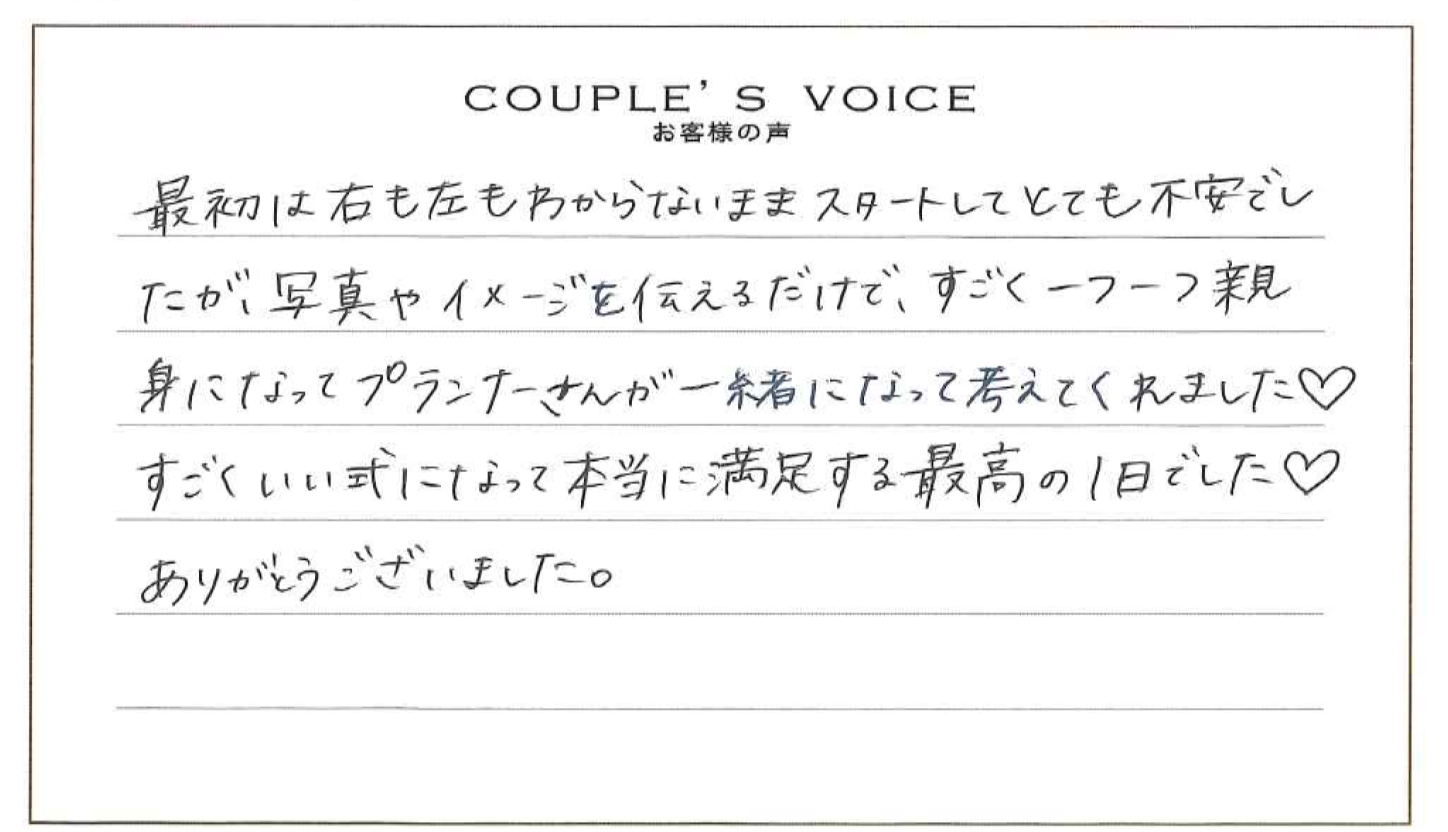 COUPLE'S VOICE
お客様の声
最初は右も左もわからないままスタートしてとても不安でし
たが、写真やイメージを伝えるだけで、すごく一つ一つ親
身になってプランナーさんが一緒になって考えてくれました♡
すごくいい式になって本当に満足する最高の1日でした♡
ありがとうございました。